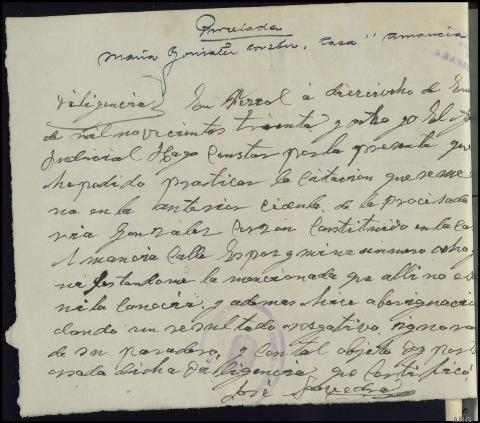 Procesada
Maria Gonzalez Cerdan, casa "Amancia
Diligencia En Ferrol á dieciocho de En
de mil novecientos treinta y ocho yo El A
Judicial Hago constar por la presente que
he podido practicar la citacion que se me
na en la anterior cedula, de la procesada
ria Gonzalez Cerdan Constituido en la ca
Amancia Calle Espoz y mina numero ocho,
ni festandome la mencionada que alli no e
ni la conocia, y ademas hice aberiguacio
dando un resultado negativo, ignora
de su paradero, y con tal objeto es post
orada dicha diligencia, que Certifico
José Saavedra